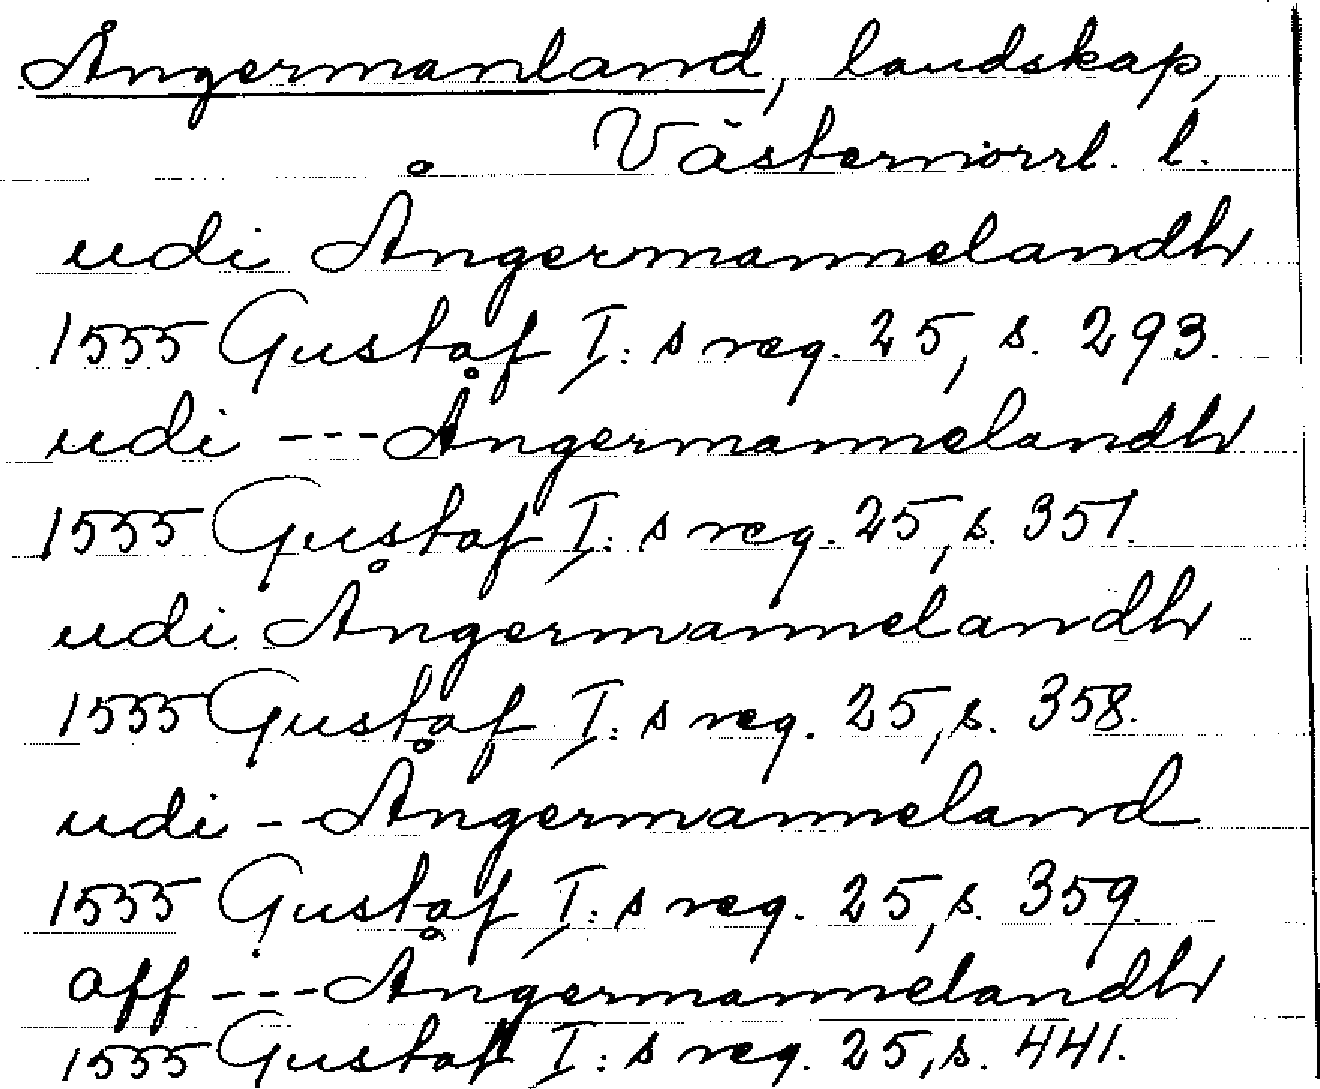 Ångermanland, landskap,
Västernorrl. l.
udi Ångermannelandh
1555 Gustaf I:s reg. 25, s. 293.
udi --- Ångermannelandh
1555 Gustaf I:s reg. 25, s. 351.
udi Ångermannelandh
1555 Gustaf I:s reg. 25, s. 358.
udi -- Ångermanneland
1555 Gustaf I:s reg. 25, s. 359.
aff --- Ångermannelandh
1555 Gustaf I:s reg. 25, s. 441.